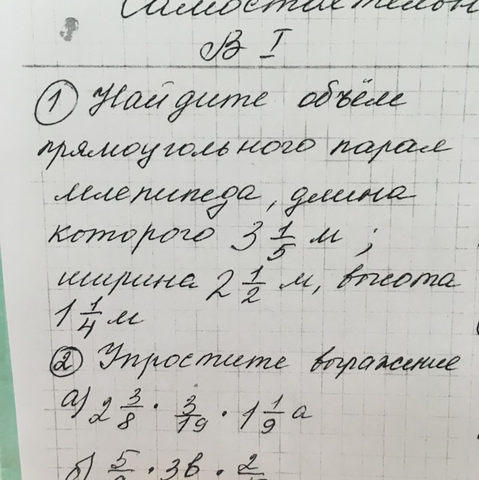 Самостоятельн
В I
① Найдите объём
прямоугольного парал
лелепипеда, длина
которого 3 1/5 м ;
ширина 2 1/2 м, высота
1 1/4 м
② Упростите выражение
а) 2 3/8 · 3/19 · 1 1/9 а
б) 5/ · 3в · 2/